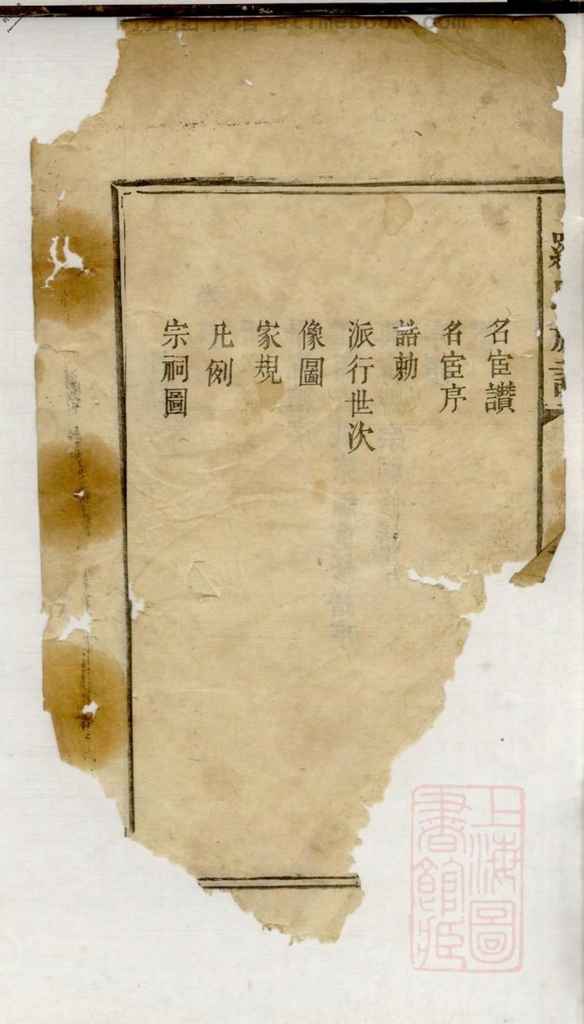 名宦讃
名宦序
誥勅
派行世次
像圖
家規
凡例
宗祠圖
上海圖
書館藏